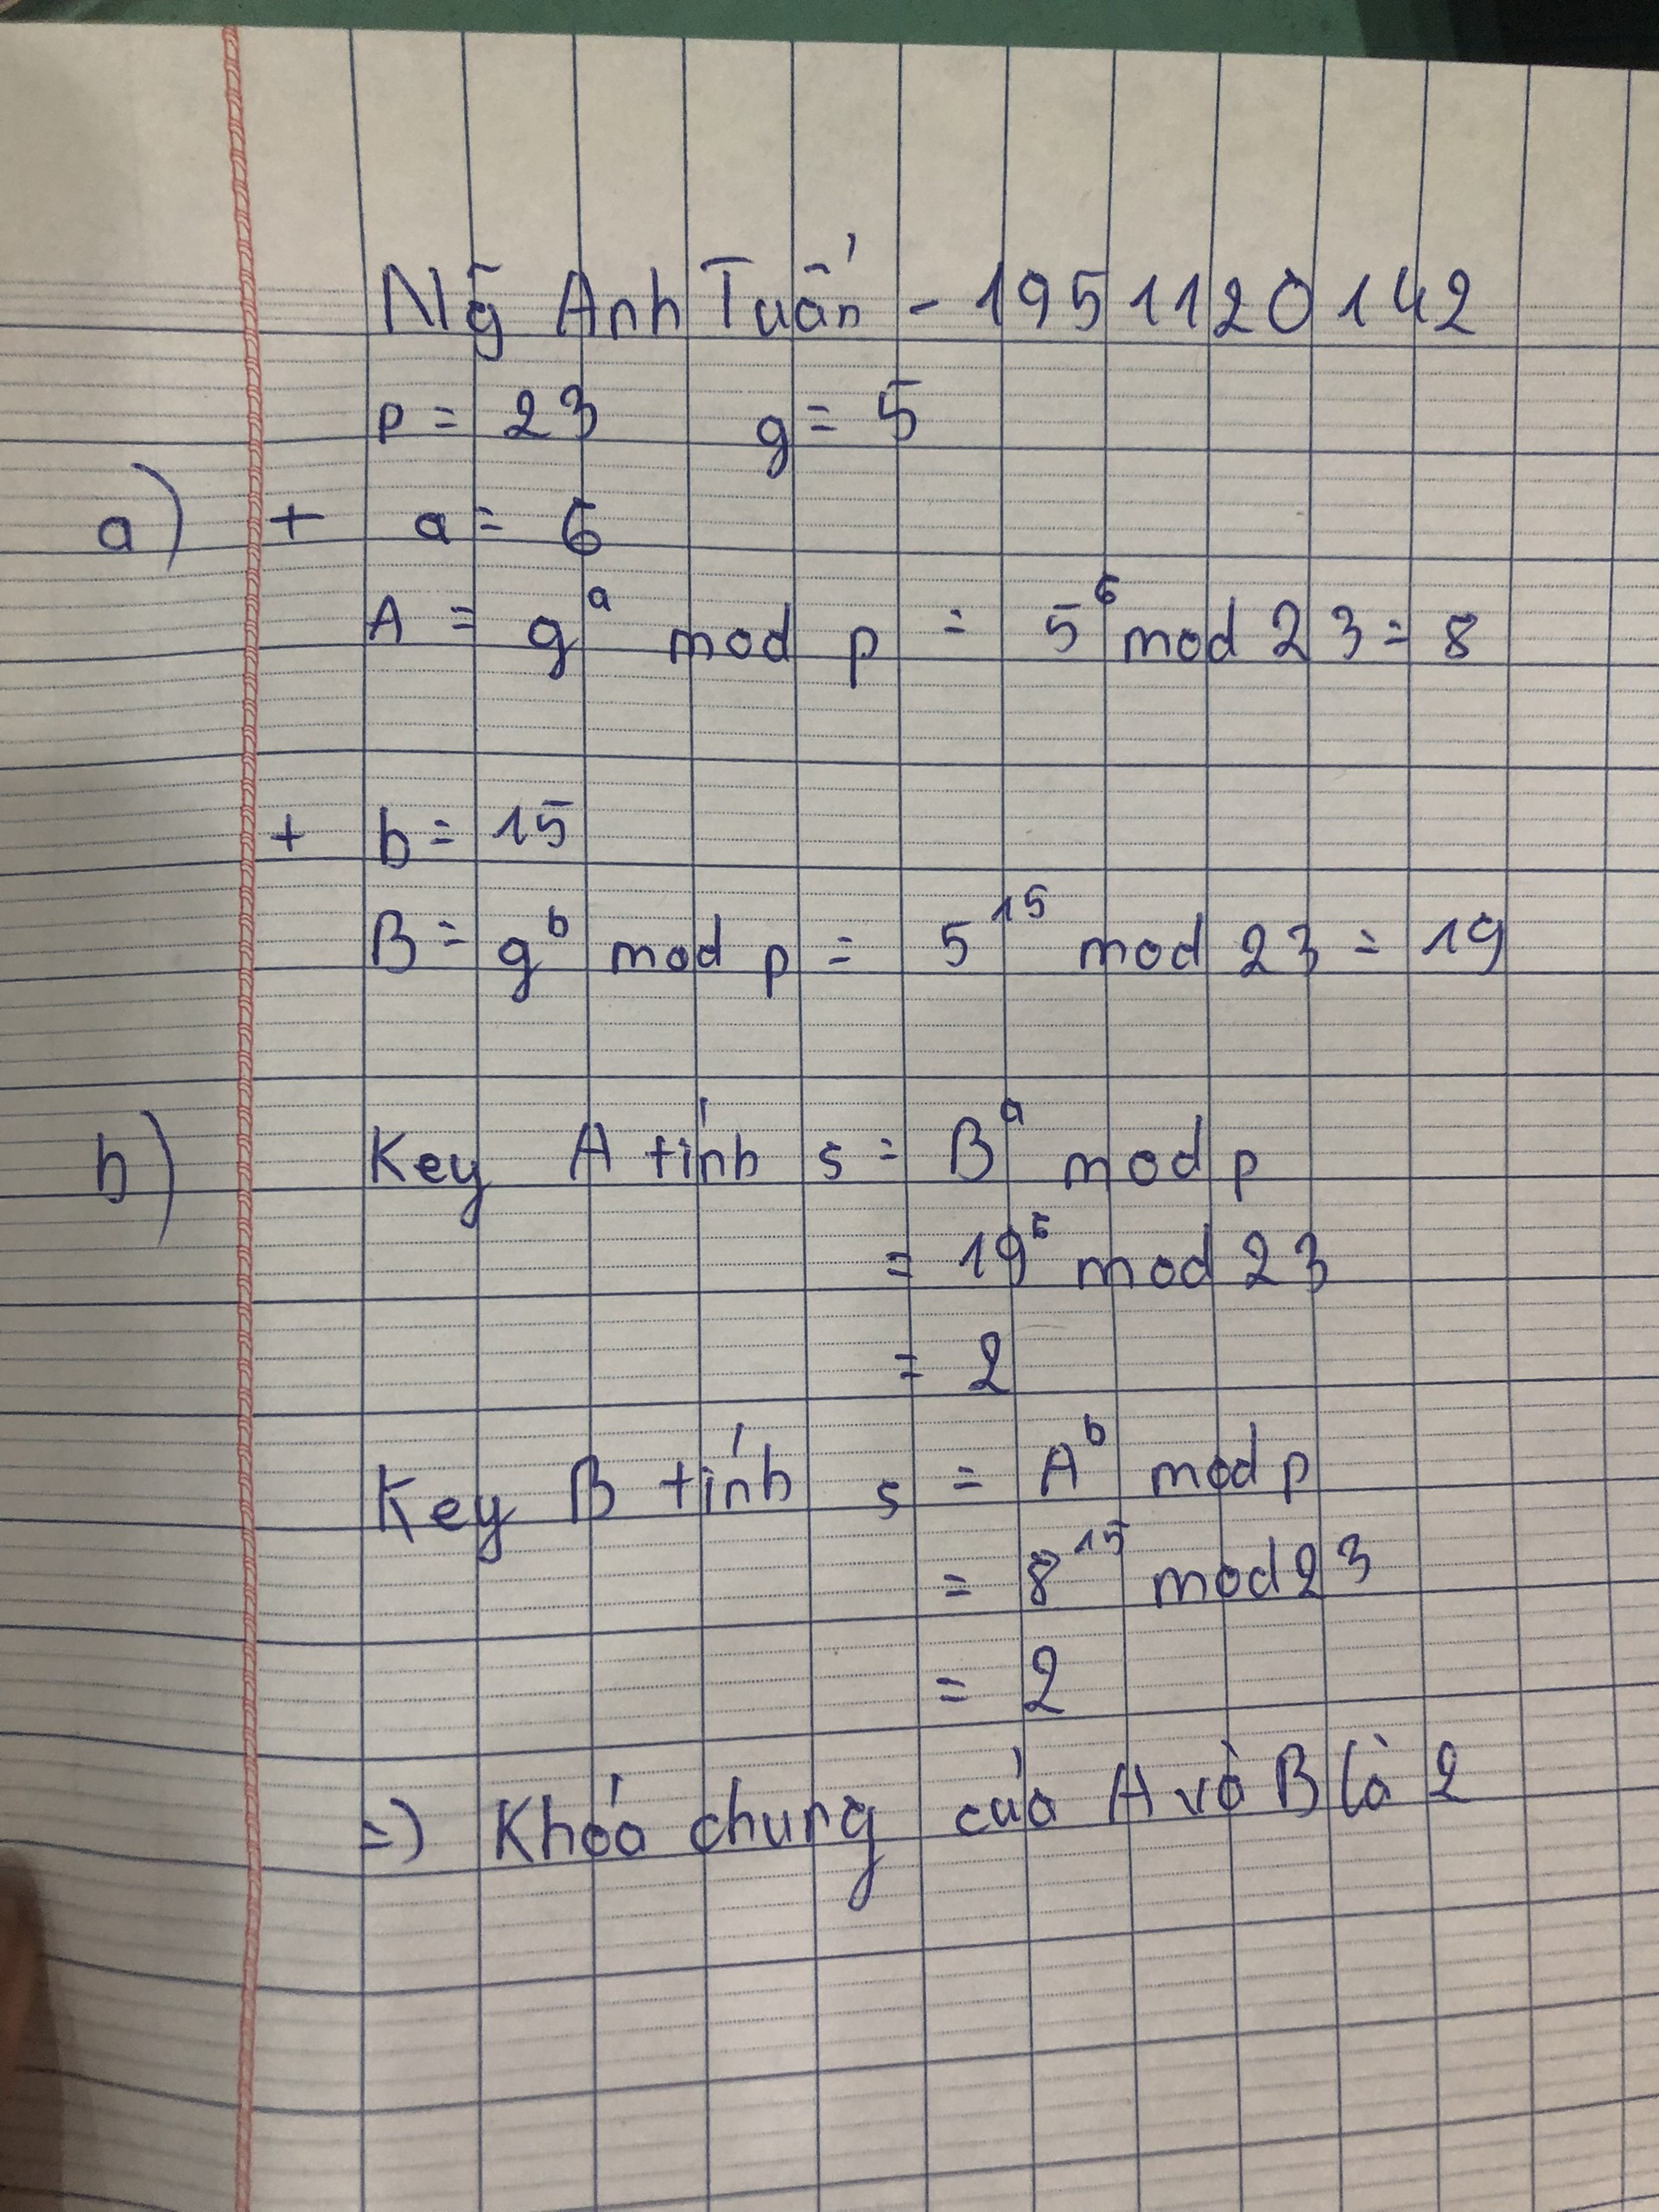 Ng̃ Anh Tuấn - 1951120142
p = 23 g = 5
a) + a = 6
A = g^a mod p = 5^6 mod 23 = 8
+ b = 15
B = g^b mod p = 5^15 mod 23 = 19
b) Key A tính s = B^a mod p
= 19^6 mod 23
= 2
Key B tính s = A^b mod p
= 8^15 mod 23
= 2
=) Khóa chung của A và B là 2